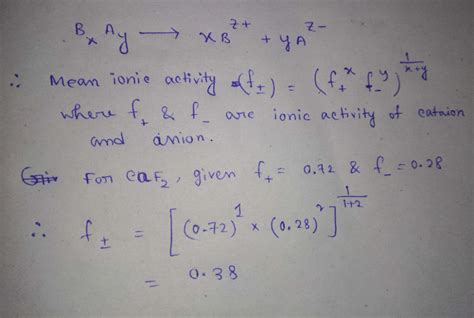 BₓAᵧ ⟶ xB^{z+} + yA^{z-}
∴ Mean ionic activity (f±) = (f₊^x f₋^y)^{1/(x+y)}
where f₊ & f₋ are ionic activity of cataion
and anion.
For CaF₂, given f₊ = 0.72 & f₋ = 0.28
∴ f± = [(0.72)^1 × (0.28)^2]^{1/(1+2)}
= 0.38